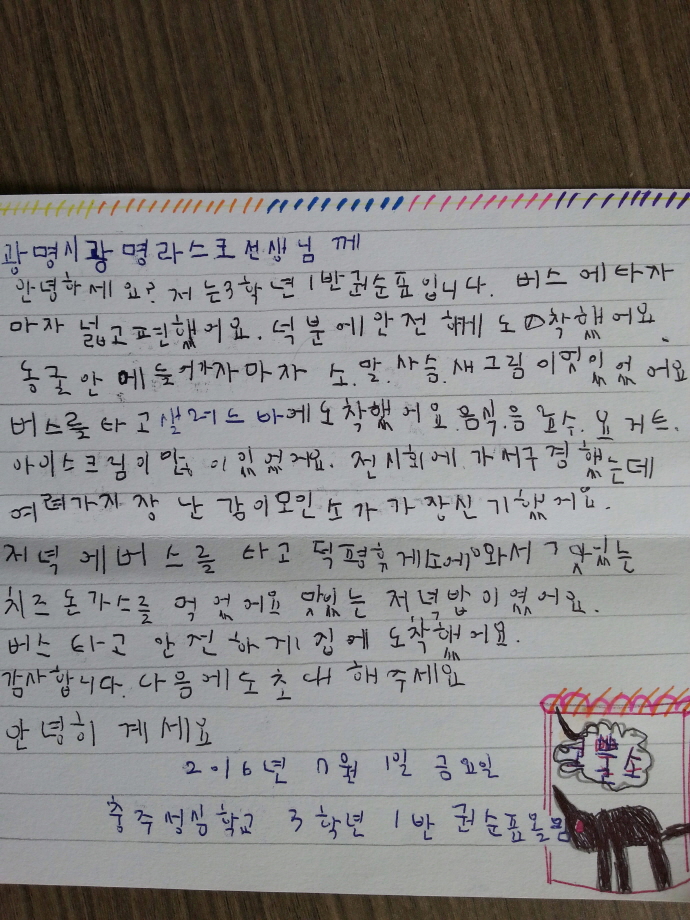 광명시광명라스코선생님께
안녕하세요? 저는3학년1반권순표입니다. 버스에타자
마자 넓고편했어요. 덕분에안전하게 도착했어요.
동굴안에들어가자마자 소.말.사슴.새그림이있었어요
버스를타고샐러드바에도착했어요.음식.음료수.요거트.
아이스크림이많이있었어요. 전시회에가서구경했는데
여러가지장난감이모인소가가장신기했어요.
저녁에버스를 타고 덕평휴게소에와서
치즈돈가스를 먹었어요 맛있는 저녁밥이였어요.
버스타고 안전하게집에 도착했어요.
감사합니다. 다음에도초대해주세요
안녕히계세요
2016년 7월 1일 금요일
충주성심학교 3학년 1반 권순표올림